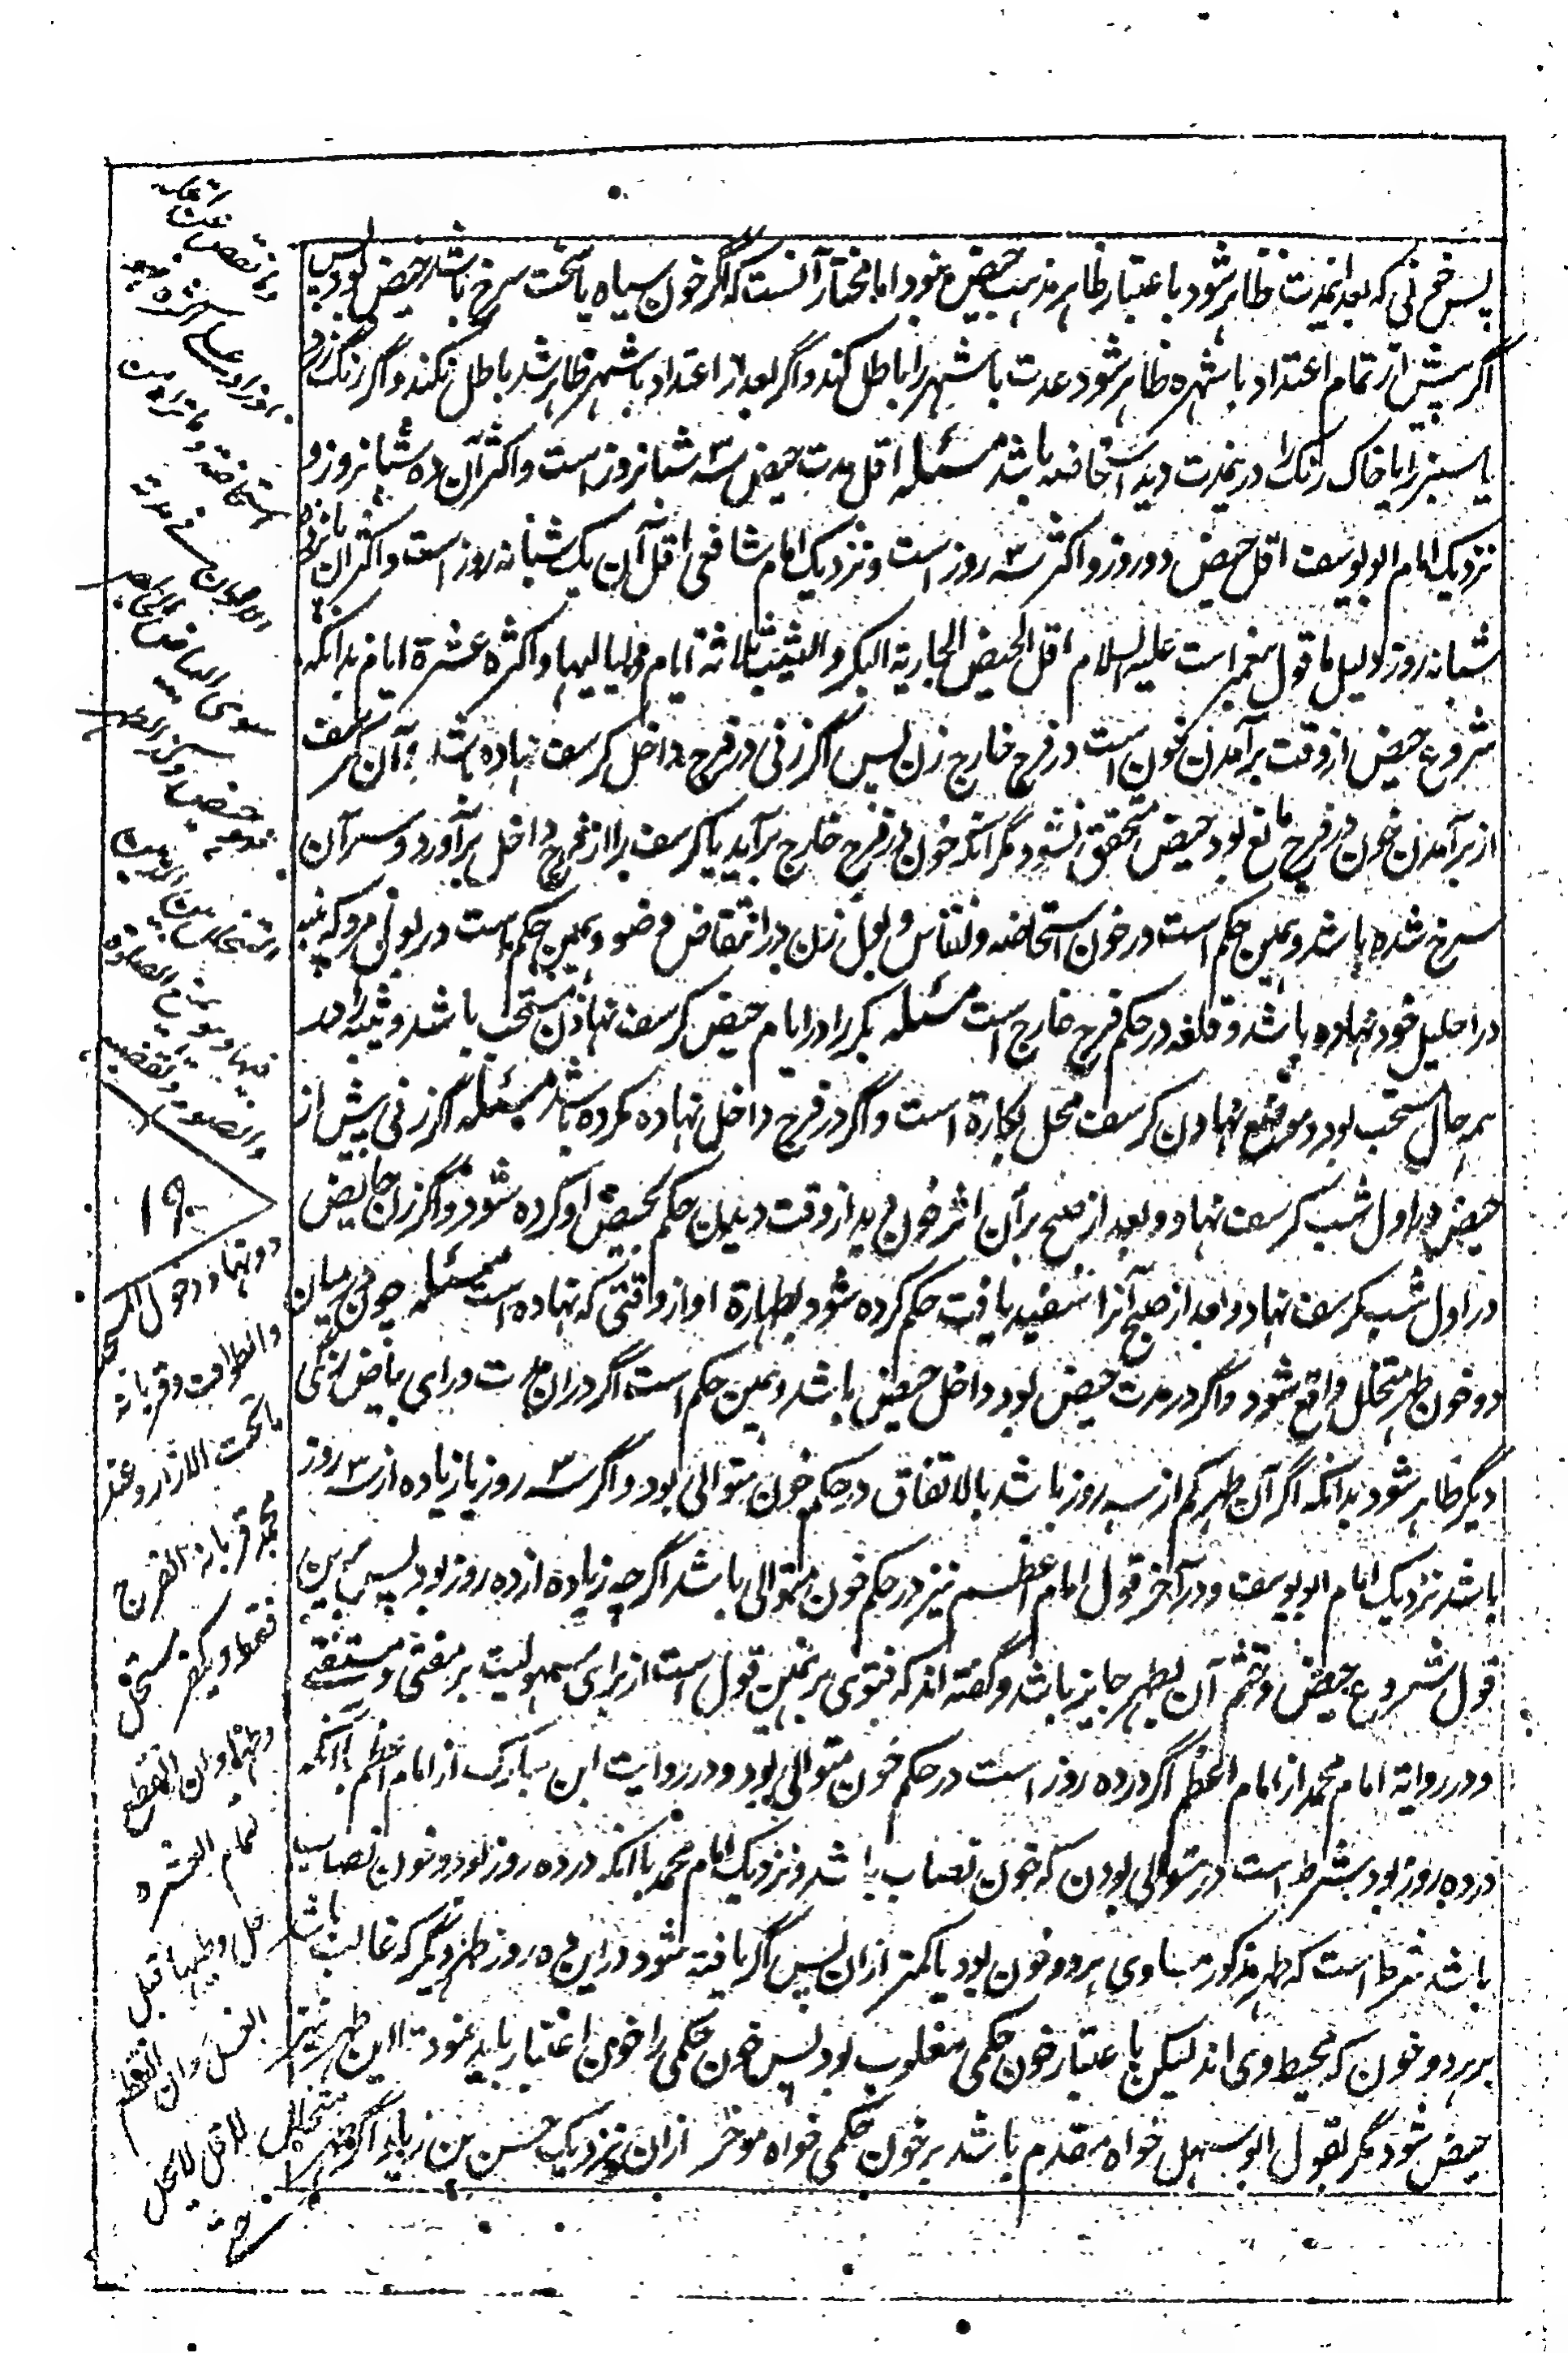 پس خونی که بعد ازین مدت ظاهر شود باعتبار ظاهر مذهب حیض نبود اما مختار آنست که اگر خون سیاه یا سخت سرخ باشد حیض بود پس
اگر پیش از تمام اعتداد باشهر ظاهر شود عدت باشهر را باطل کند و اگر بعد از اعتداد باشهر ظاهر شد باطل نکند و اگر رنگ زرد
یا سبز را یا خاک رنگ را درین مدت دید استحاضه باشد مسئله اقل مدت حیض سه شبانروز است و اکثر آن ده شبانروز و
نزدیک امام ابو یوسف اقل حیض دو روز و اکثر سه روز است و نزدیک امام شافعی اقل آن یک شبانه روز است و اکثر آن پانزده
شبانه روز دلیل ما قول پیغمبر است علیه السلام اقل الحیض الجاریة البکر و الثیب ثلاثة ایام ولیالیها و اکثره عشرة ایام بدانکه
شروع حیض از وقت برآمدن خون است در فرج خارج زن پس اگر زنی در فرج داخل کرسف نهاده باشد و آن کرسف
از برآمدن خون در فرج مانع بود حیض متحقق نشود مگر آنکه خون در فرج خارج برآید یا کرسف را از فرج داخل برآورد و سر آن
سرخ شده باشد و همین حکم است در خون استحاضه و نفاس و بول زن در انتقاض وضو و همین حکم است در بول مرد که پنبه
در احلیل خود نهاده باشد و قلفه در حکم فرج خارج است مسئله بکر را در ایام حیض کرسف نهادن مستحب باشد و ثیبه را در
هر حال مستحب بود و موضع نهادن کرسف محل بکارة است و اگر در فرج داخل نهاده مکروه باشد مسئله اگر زنی پیش از
حیض در اول شب کرسف نهاد و بعد از صبح بر آن اثر خون دید از وقت دیدن حکم بحیض او کرده شود و اگر زن حایض
در اول شب کرسف نهاد و بعد از صبح آنرا سفید یافت حکم کرده شود بطهارة او از وقتی که نهاده است مسئله چون میان
دو خون طهر متخلل واقع شود و اگر در مدت حیض بود داخل حیض باشد و همین حکم است اگر در آن مدت ورای بیاض رنگی
دیگر ظاهر شود بدانکه اگر آن طهر کم از سه روز باشد بالاتفاق در حکم خون متوالی بود و اگر سه روز یا زیاده از سه روز
باشد نزدیک امام ابو یوسف و در آخر قول امام اعظم نیز در حکم خون متوالی باشد اگر چه زیاده از ده روز بود پس برین
قول شروع حیض و ختم آن بطهر جایز باشد و گفته اند که فتوی بر همین قول است از برای سهولیت بر مفتی و مستفتی
و در روایة امام محمد از امام اعظم اگر در ده روز است در حکم خون متوالی بود و در روایت ابن مبارک از امام اعظم با آنکه
در ده روز بود شرط است در متوالی بودن که خون نصاب باشد و نزدیک امام محمد با آنکه در ده روز بود و خون نصاب
باشد شرط است که طهر مذکور مساوی هر دو خون بود یا کمتر از آن پس اگر یافته شود در این ده روز طهر دیگر که غالب باشد
بر هر دو خون که محیط وی اند لیکن باعتبار خون حکمی مغلوب بود پس خون حکمی را خون اعتبار باید نمود تا این طهر نیز
حیض شود مگر بقول ابو سهل خواه مقدم باشد بر خون حکمی خواه موخر از آن نزدیک حسن بن زیاد اگر طهر
وما نقص عن
استحاضة وما ترا من
الالوان فی مدته
سوی البیاض
حیضا وکذا الطهر
النفاس من الدمین
فیها ویمنع الصلوة
والصوم وتقضیه
۱۹
دونها ودخول المسجد
والطواف وقربان
ما تحت الازار وعند
محمد قربان الفرج
فقط ویکفر مستحل
وطیها وان انقطع
لتمام العشرة
حل وطیها قبل
الغسل وان انقطع
لاقل لا یحل